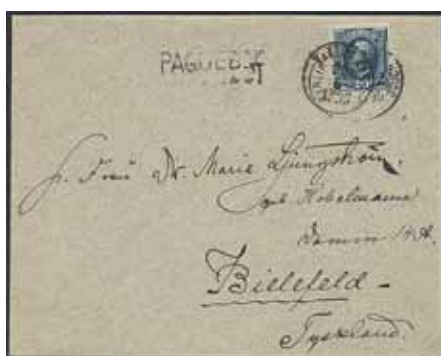 PAQUEBOT
Fr. Frau Dr. Marie Ljungström,
geb Hobelmann
Damm 14A.
Bielefeld -
Tyskland.